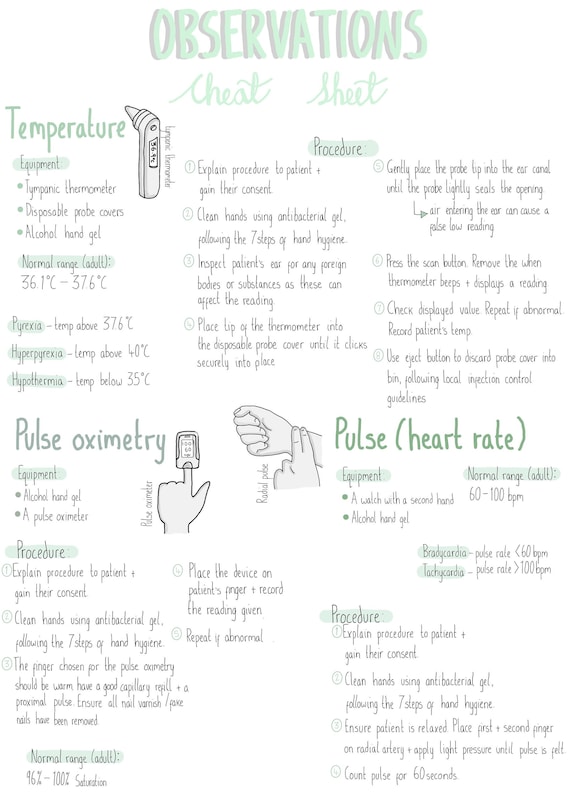 OBSERVATIONS
Cheat Sheet
Temperature
Tympanic thermometer
Equipment
Tympanic thermometer
Disposable probe covers
Alcohol hand gel
Normal range (adult):
36.1°C – 37.6°C
Pyrexia – temp above 37.6°C
Hyperpyrexia – temp above 40°C
Hypothermia – temp below 35°C
Procedure:
1 Explain procedure to patient +
gain their consent.
2 Clean hands using antibacterial gel,
following the 7 steps of hand hygiene.
3 Inspect patient's ear for any foreign
bodies or substances as these can
affect the reading.
4 Place tip of the thermometer into
the disposable probe cover until it clicks
securely into place.
5 Gently place the probe tip into the ear canal
until the probe lightly seals the opening.
air entering the ear can cause a
false low reading
6 Press the scan button. Remove the when
thermometer beeps + displays a reading
7 Check displayed value. Repeat if abnormal.
Record patient's temp.
8 Use eject button to discard probe cover into
bin, following local injection control
guidelines.
Pulse oximetry
Pulse oximeter
Equipment
Alcohol hand gel
A pulse oximeter
Procedure
1 Explain procedure to patient +
gain their consent.
2 Clean hands using antibacterial gel,
following the 7 steps of hand hygiene.
3 The finger chosen for the pulse oximetry
should be warm have a good capillary refill + a
proximal pulse. Ensure all nail varnish / fake
nails have been removed.
4 Place the device on
patient's finger + record
the reading given.
5 Repeat if abnormal.
Normal range (adult):
96% – 100% Saturation
Radial pulse
Pulse (heart rate)
Equipment
A watch with a second hand
Alcohol hand gel
Normal range (adult):
60 – 100 bpm
Bradycardia – pulse rate <60bpm
Tachycardia – pulse rate >100bpm
Procedure
1 Explain procedure to patient +
gain their consent.
2 Clean hands using antibacterial gel,
following the 7 steps of hand hygiene.
3 Ensure patient is relaxed. Place first + second finger
on radial artery + apply light pressure until pulse is felt.
4 Count pulse for 60 seconds.